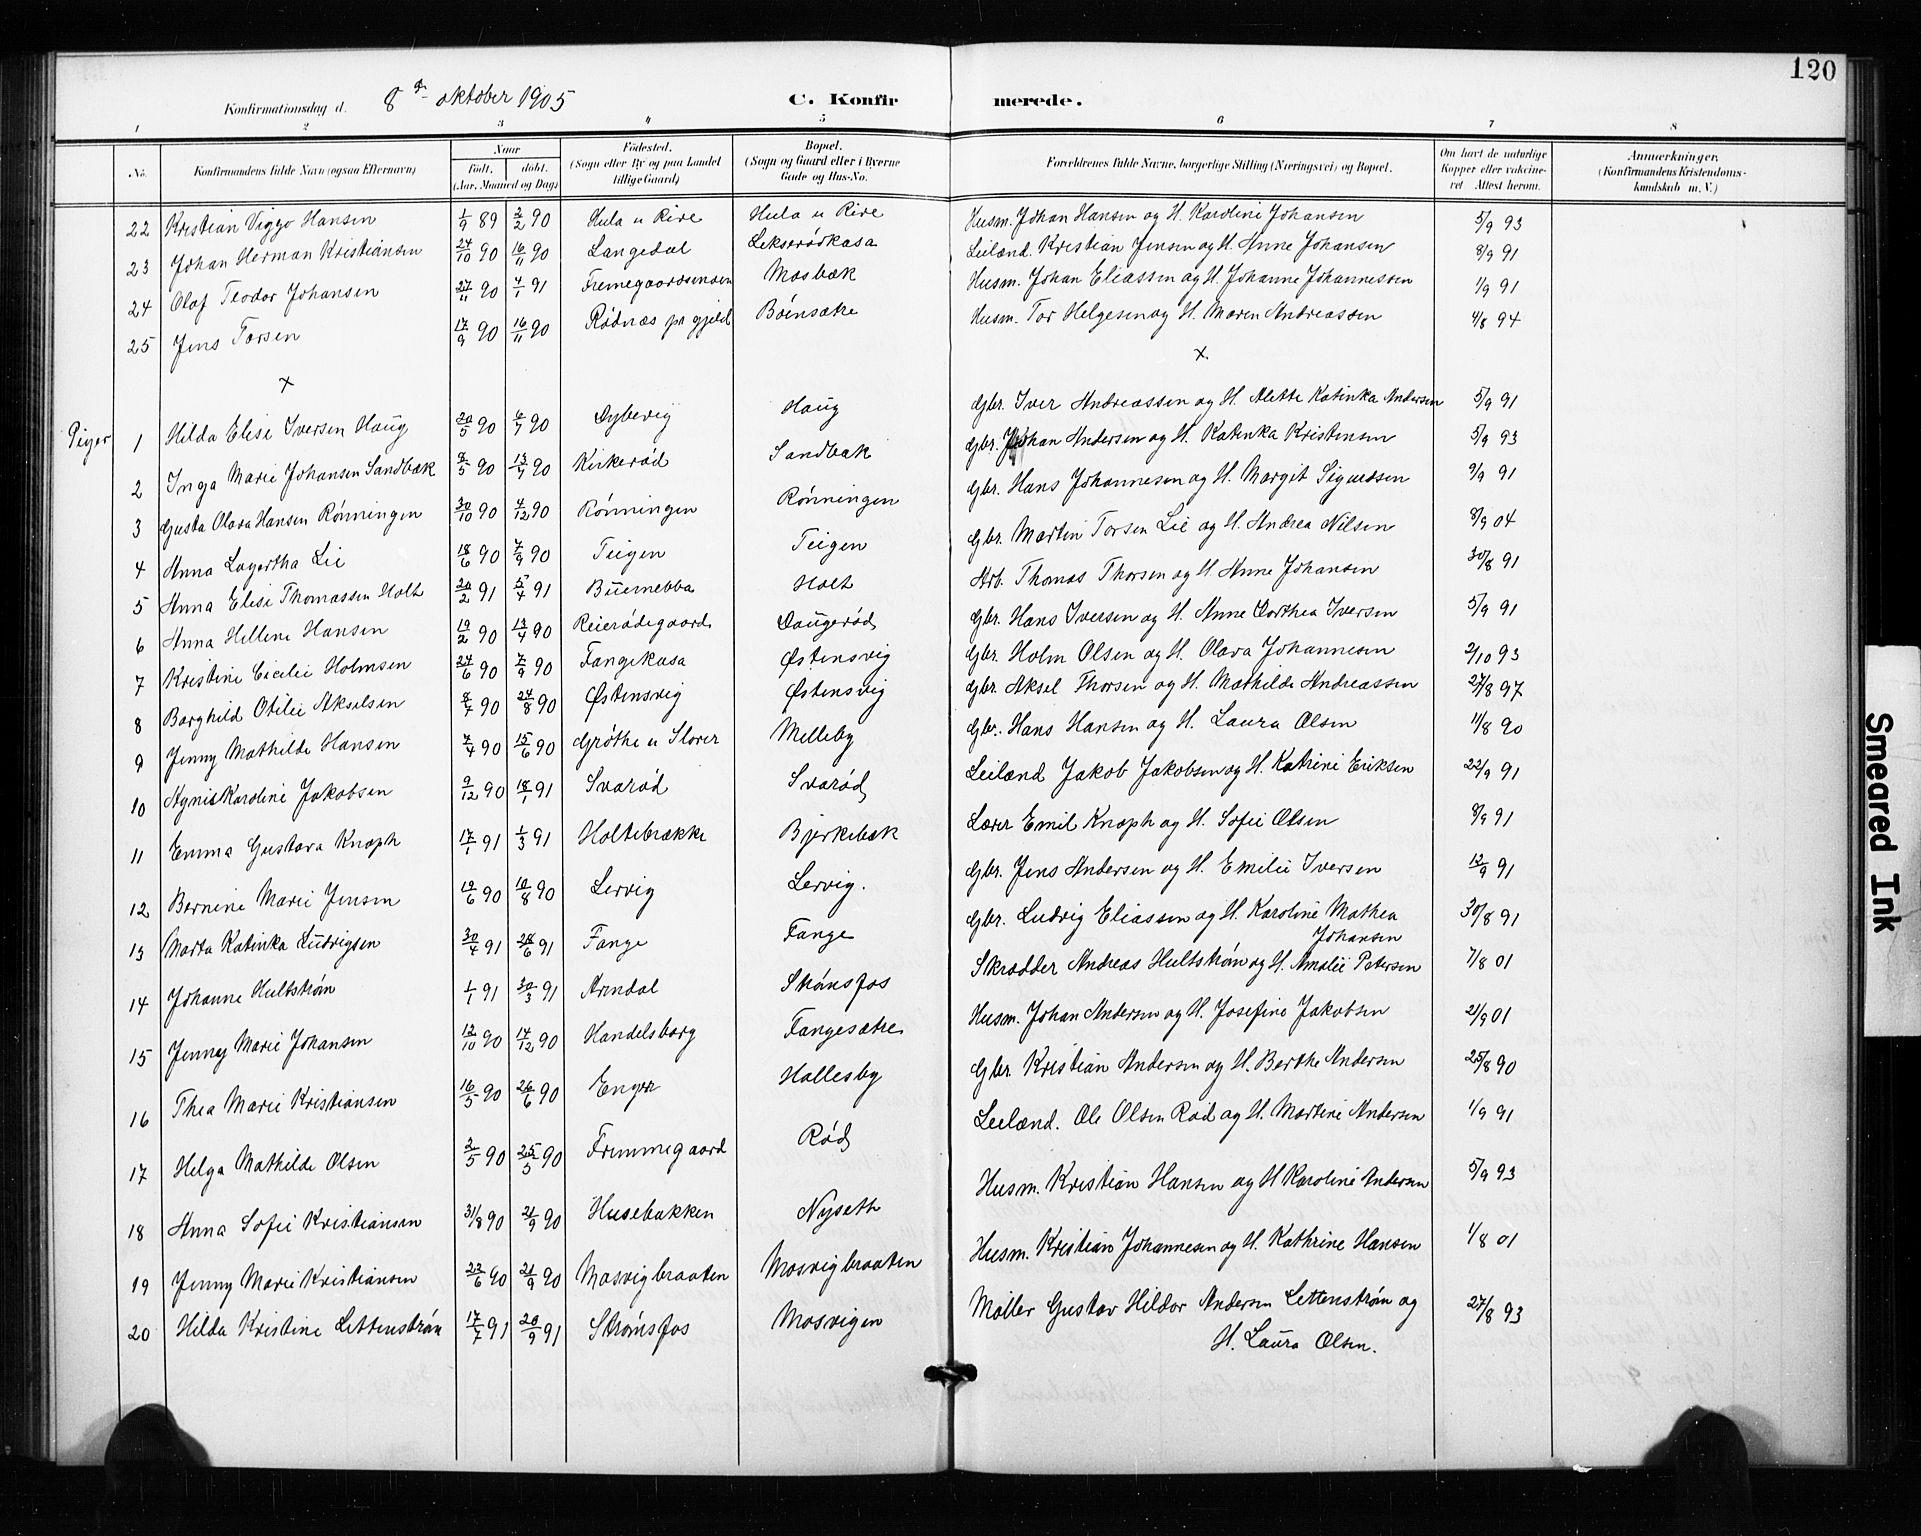 120
Konfirmationsdag d. 8de oktober 1905 C. Konfirmerede.
1 2 3 4 5 6 7 8
No. Konfirmandens fulde Navn (ogsaa Efternavn) Naar født. døbt. (Aar, Maaned og Dag) Fødested. (Sogn eller By og paa Landet tillige Gaard) Bopæl. (Sogn og Gaard eller i Byerne Gade og Hus-No. Forældrenes fulde Navne, borgerlige Stilling (Næringsvei) og Bopæl. Om havt de naturlige Kopper eller vakcineret Attest herom. Anmerkninger, (Konfirmandens Kristendomskundskab m. V.)
22 Kristian Viggo Hansen 1/9 89 2/2 90 Hula u Rive Hula u Rive Husm. Johan Hansen og H. Karoline Johansen 5/9 93
23 Johan Herman Kristiansen 24/10 90 16/11 90 Langedal Lekserødkasa Leilænd. Kristian Jensen og H. Anne Johansen 8/9 91
24 Olaf Teodor Johansen 27/11 90 4/1 91 Mosbæk Husm. Johan Eliassen og H. Johanne Johannessen 1/9 91
25 Jens Torsen 17/9 90 16/11 90 Rødnæs pr gjeld Bøensætre Husm. Tor Helgesen og H. Maren Andreassen 4/8 94
x x
Piger 1 Hilda Elise Iversen Haug 20/5 90 6/7 90 Dybevig Haug Gbr. Iver Andreassen og H. Alette Katinka Andersen 5/9 91
2 Inga Marie Johansen Sandbæk 8/5 90 13/7 90 Kirkerød Sandbæk Gbr. Johan Andersen og H. Katinka Kristensen 5/9 93
3 Gusta Olava Hansen Rønningen 30/10 90 7/12 90 Rønningen Rønningen Gbr. Hans Johannesen og H. Margit Sigurdsen 9/9 91
4 Anna Lagertha Lie 18/6 90 7/9 90 Teigen Teigen Gbr. Martin Torsen Lie og H. Andrea Nilsen 8/9 04
5 Anna Elise Thomassen Holt 20/2 91 5/4 91 Buernebba Holt Arb. Thomas Thorsen og H. Anne Johansen 30/8 91
6 Anna Hellene Hansen 19/2 90 13/4 90 Reierødegaard Daugerød Gbr. Hans Iversen og H. Anne Dorthea Iversen 5/9 91
7 Kristine Cicilie Holmsen 24/6 90 7/9 90 Tangekasa Østensvig Gbr. Holm Olsen og H. Olava Johannesen 2/10 93
8 Borghild Otilie Akselsen 8/7 90 24/8 90 Østensvig Østensvig Gbr. Aksel Thorsen og H. Mathilde Andreassen 27/8 97
9 Jenny Mathilde Hansen 7/4 90 15/6 90 Grøthe u Slorer Melleby Gbr. Hans Hansen og H. Laura Olsen 11/8 90
10 Agnis Karoline Jakobsen 9/12 90 18/1 91 Svarød Svarød Leilænd Jakob Jakobsen og H. Katrine Eriksen 22/9 91
11 Emma Gustava Knoph 17/1 91 1/3 91 Holtebrække Bjerkebæk Lærer Emil Knoph og H. Sofie Olsen 8/9 91
12 Bernine Marie Jensen 19/6 90 10/8 90 Lervig Lervig. Gbr. Jens Andersen og H. Emilie Iversen 12/9 91
13 Marta Katinka Ludvigsen 30/4 91 28/6 91 Tange Tange Gbr. Ludvig Eliassen og H. Karoline Mathea Johansen 30/8 91
14 Johanne Hultstrøm 1/1 91 30/3 91 Arendal Strømsfos Skrædder Andreas Hultstrøm og H. Amalie Petersen 7/8 01
15 Jenny Marie Johansen 12/10 90 14/12 90 Handelsborg Tangesætre Husm. Johan Andersen og H. Josefine Jakobsen 21/9 01
16 Thea Marie Kristiansen 16/5 90 26/6 90 Enger Hallesby Gbr. Kristian Andersen og H. Berthe Andersen 25/8 90
17 Helga Mathilde Olsen 2/5 90 25/5 90 Fremmegaard Rød Leilænd. Ole Olsen Rød og H. Martine Andersen 1/9 91
18 Anna Sofie Kristiansen 31/8 90 21/9 90 Husebakken Nyseth Husm. Kristian Hansen og H Karoline Andersen 5/9 93
19 Jenny Marie Kristiansen 23/6 90 21/9 90 Mosvigbraaten Mosvigbraaten Husm. Kristian Johannesen og H. Kathrine Hansen 1/8 01
20 Hilda Kristine Lettenstrøm 17/7 91 20/9 91 Strømsfos Mosvigen Møller Gustav Hildor Andersen Lettenstrøm og 27/8 93
H. Laura Olsen.
Smeared Ink